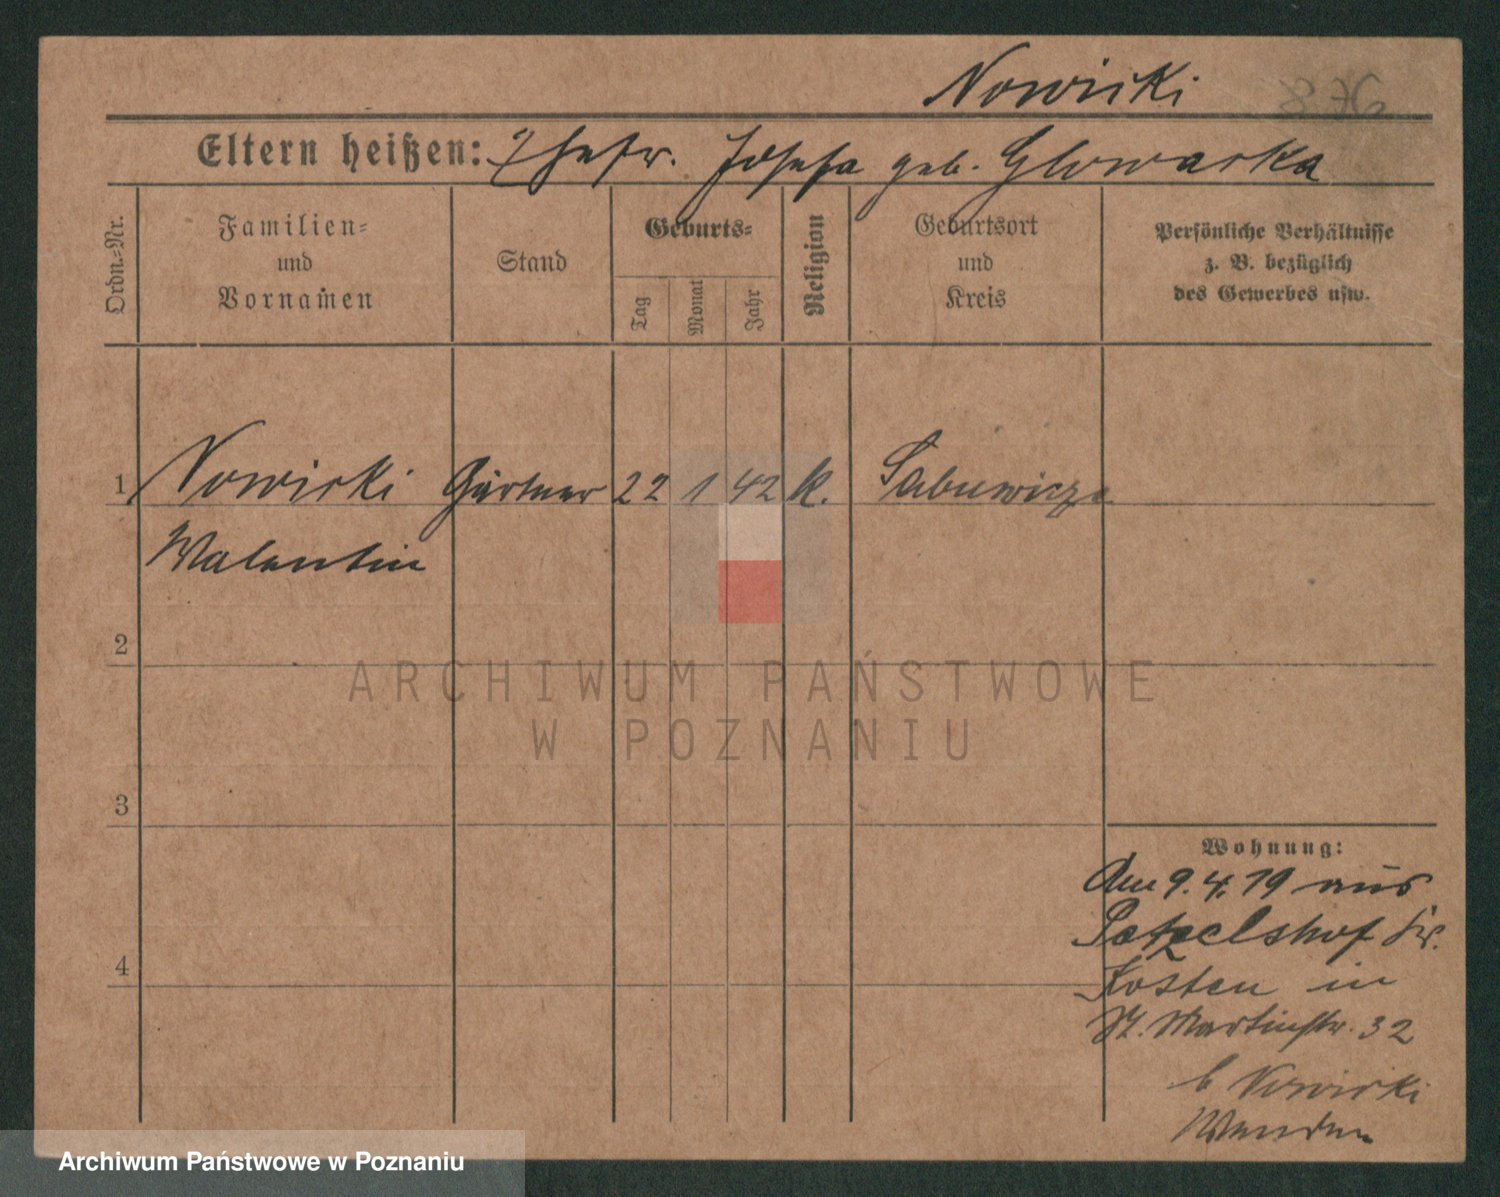 Nowicki
Eltern heißen: Ehefr. Josefa geb. Glowacka
Ordn.-Nr.
Familien-
und
Vornamen
Stand
Geburts-
Tag
Monat
Jahr
Religion
Geburtsort
und
Kreis
Persönliche Verhältnisse
z. B. bezüglich
des Gewerbes usw.
1 Nowicki Gärtner 22 1 42 k.
Walentin
2
3
4
Wohnung:
Am 9.4.19 aus
Petzelshof Kr.
Kosten in
St. Martinstr. 32
b Nowicki
Wenden
ARCHIWUM PAŃSTWOWE
W POZNANIU
Archiwum Państwowe w Poznaniu